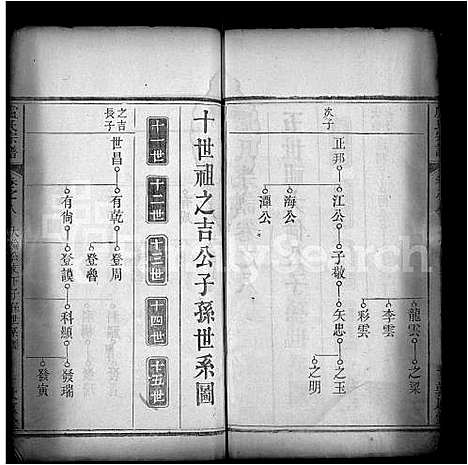 次子
正邦
江公
海公
潭公
子敬
矢忠
之玉
之明
龍雲
李雲
彩雲
之梁
十世祖之吉公子孫世系圖
十一世
十二世
十三世
十四世
十五世
之吉長子
世昌
有乾
有倘
登周
登魯
登謨
科顯
發瑞
發寅
FamilySearch